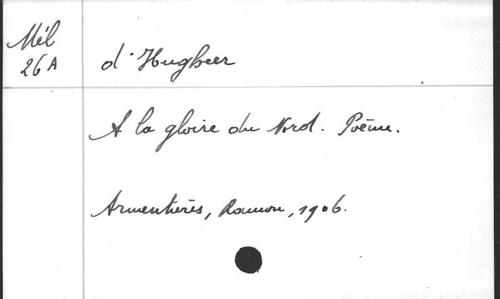 Mél
26 A
d'Hugheer
A la gloire du Nord. Poème.
Armentières, Ramon, 1906.